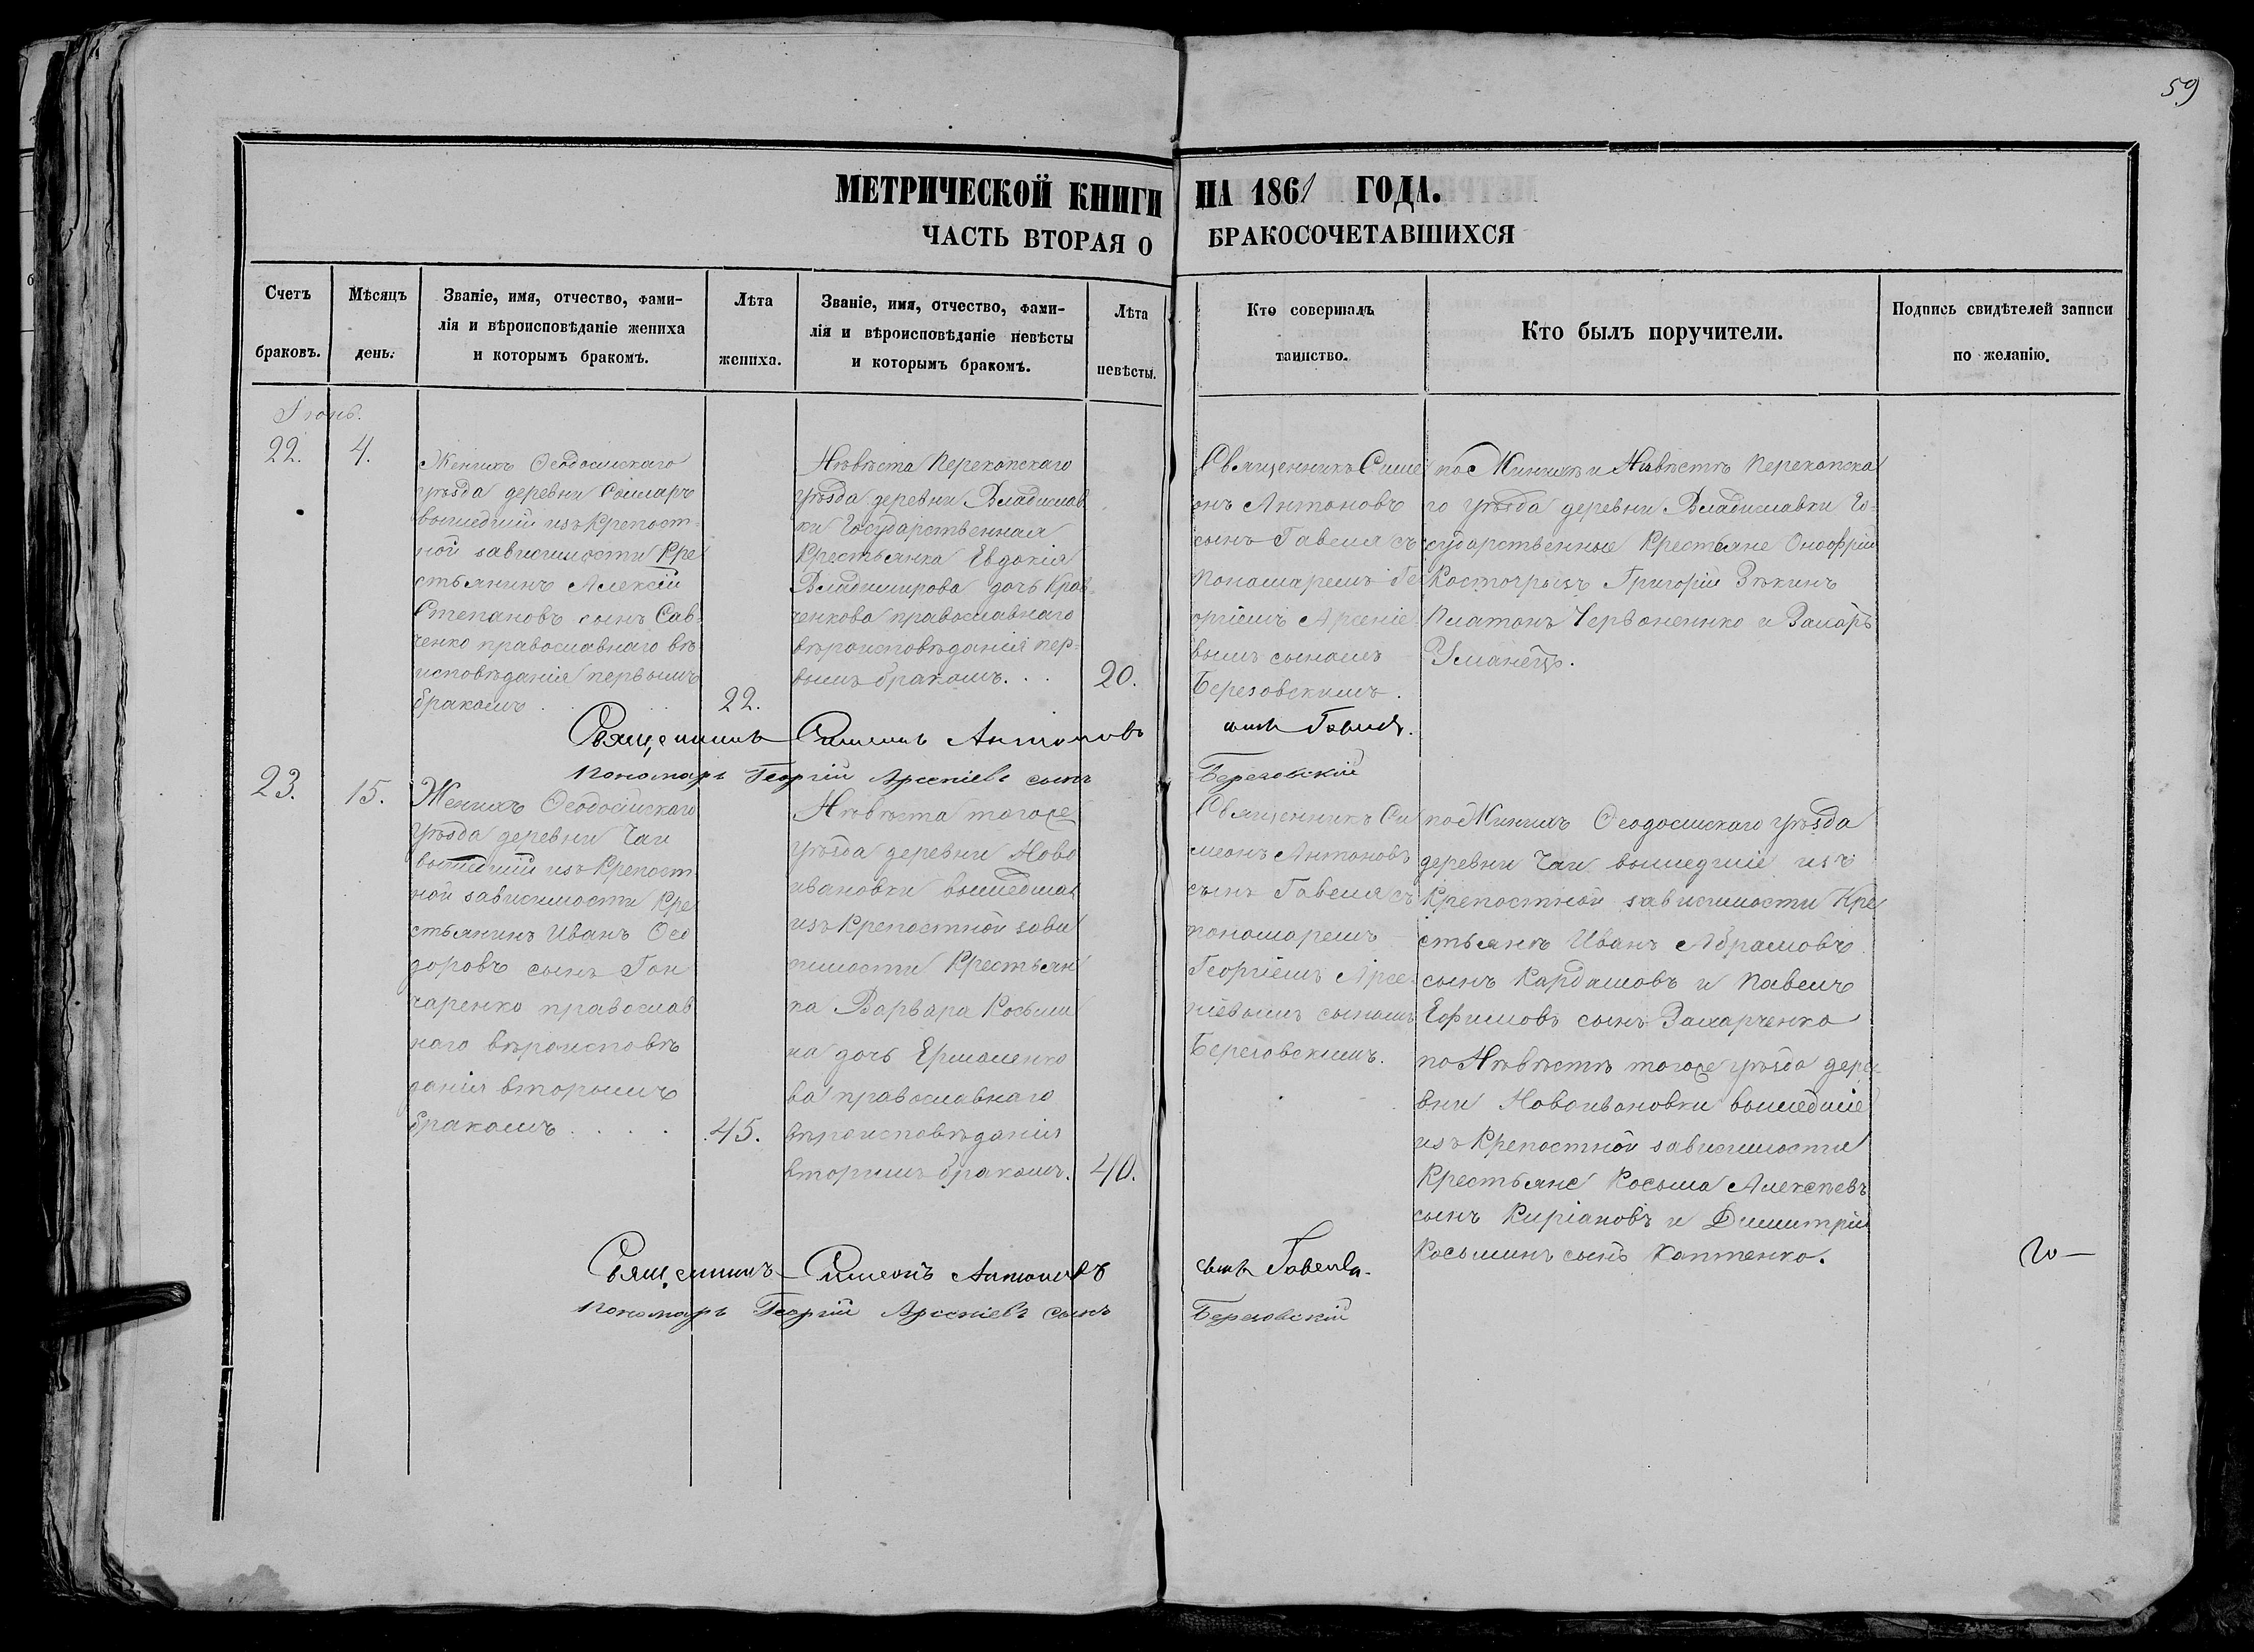 59
МЕТРИЧЕСКОЙ КНИГИ НА 1861 ГОДА.
ЧАСТЬ ВТОРАЯ О БРАКОСОЧЕТАВШИХСЯ
Счетъ
браковъ.
Мѣсяцъ
день.
Званіе, имя, отчество, фами-
лія и вѣроисповѣданіе жениха
и которымъ бракомъ.
Лѣта
жениха.
Званіе, имя, отчество, фами-
лія и вѣроисповѣданіе невѣсты
и которымъ бракомъ.
Лѣта
невѣсты.
Кто совершалъ
таинство.
Кто былъ поручители.
Подпись свидѣтелей записи
по желанію.
Іюнь.
22.
4.
Женихъ Ѳеодосійскаго
уѣзда деревни
вышедшій изъ Крепост-
ной зависимости Кре
стьянинъ Алексій
Степановъ сынъ Сав-
ченко православнаго вѣ
исповѣданія первымъ
бракомъ
22.
Нѣвѣста Перекопскаго
уѣзда деревни Владислав
ки Государственная
Крестьянка Евдокія
Владимирова дочь Крав-
ченкова православнаго
вѣроисповѣданія пер-
вымъ бракомъ.
20.
Священникъ Симе
онъ Антоновъ
сынъ Гавеля съ
Пономаремъ Ге
оргіемъ Арсеніе
вымъ сыномъ
Березовскимъ.
по Жинихѣ и Нѣвѣстѣ Перекопска
го уѣзда деревни Владиславки Го-
сударственные Крестьяне Онофрій
Костогрызъ Григорій Зѣкинъ
Платонъ Червоненнко и Захаръ
Уманецъ.
Священникъ Симеонъ Антоновъ сынъ Гавеля.
Пономарь Георгій Арсеніевъ сынъ Березовскій
23.
15.
Женихъ Ѳеодосійскаго
Уѣзда деревни Чаи
вышедшій изъ Крепост
ной зависимости Кре
стьянинъ Иванъ Ѳео
доровъ сынъ Гон
чаренко православ
наго вѣроисповѣ
данія вторымъ
бракомъ
45.
Нѣвѣста тогоже
уѣзда деревни Ново
ивановки вышедшая
изъ Крепостной зави
симости Крестьян
ка Варвара Косьми
на дочь Ермоленко
ва православнаго
вѣроисповѣданія
вторымъ бракомъ.
40.
Священникъ Си
меонъ Антоновъ
сынъ Гавеля съ
пономаремъ
Георгіемъ Арсе-
ніевымъ сыномъ
Березовскимъ.
по Жинихѣ Ѳеодосійскаго уѣзда
деревни Чаи вышедшіе изъ
Крепостной зависимости Кре
стьянъ Иванъ Абрамовъ
сынъ Кардашовъ и Павелъ
Ефимовъ сынъ Захарченко
по Нѣвѣстѣ тогоже уѣзда дере-
вни Новоивановки вышедшіе
изъ Крепостной зависимости
Крестьяне Косьма Алексѣевъ
сынъ Киріановъ и Димитрій
Косьминъ сынъ Коптенко.
Священникъ Симеонъ Антоновъ сынъ Гавеля.
Пономарь Георгій Арсеніевъ сынъ Березовскій